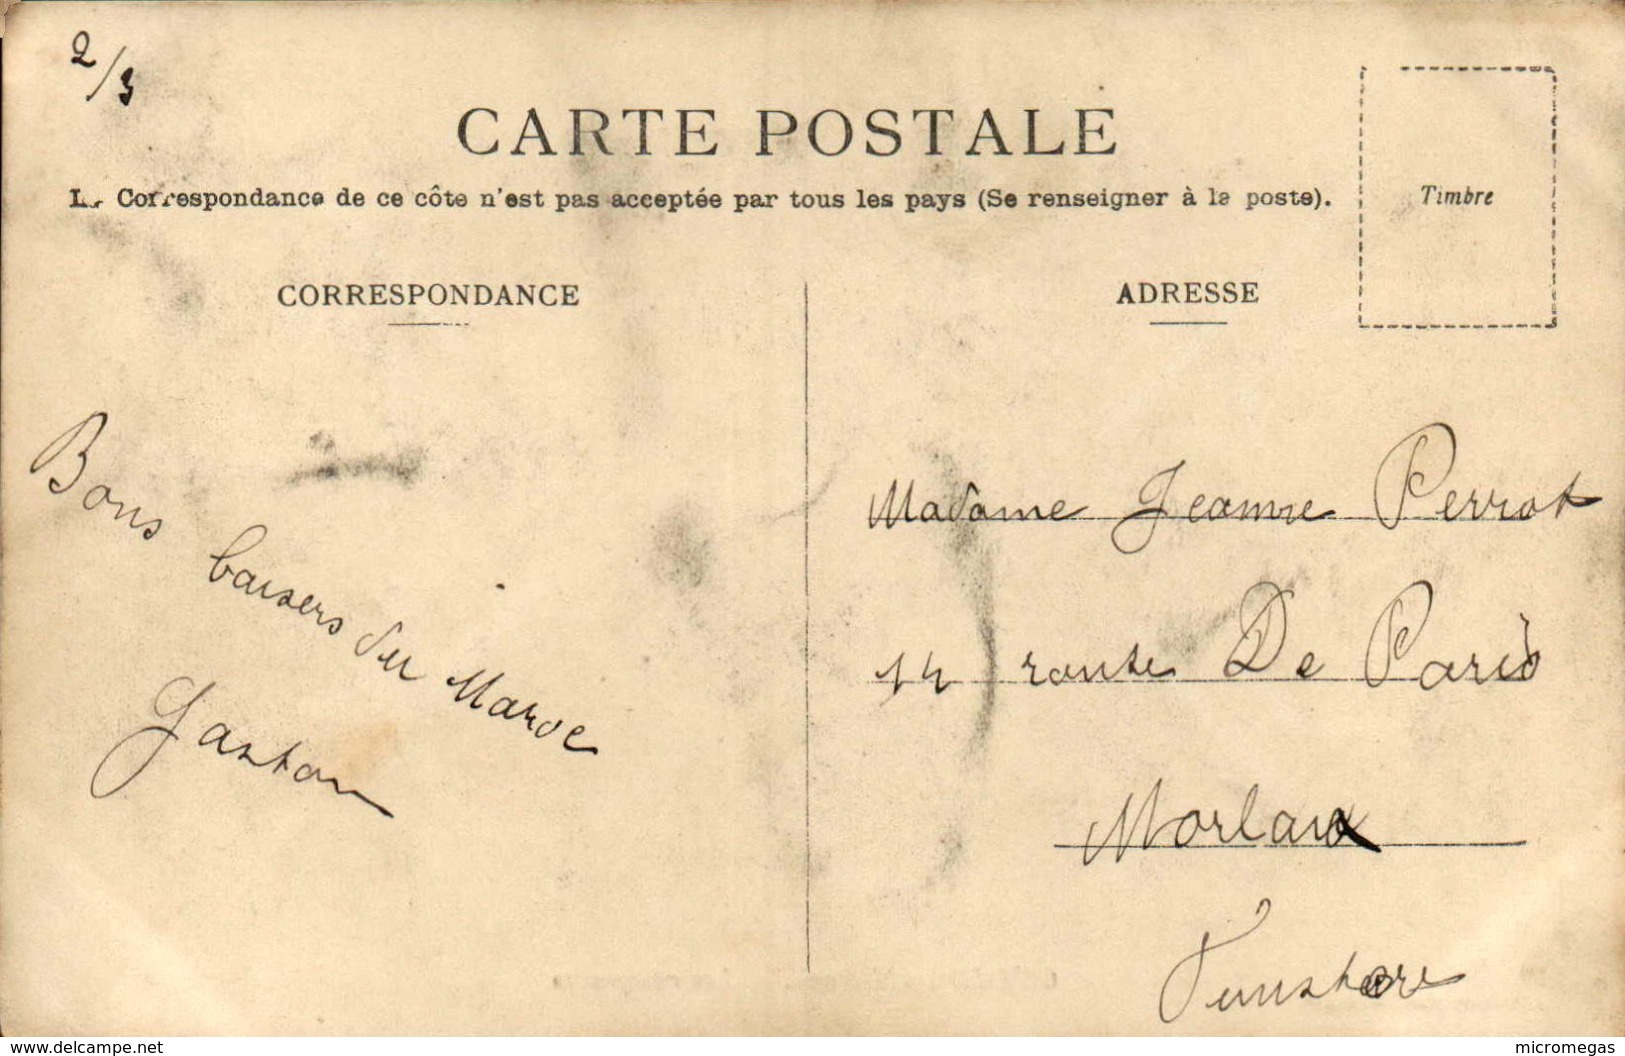 2/3
CARTE POSTALE
La Correspondance de ce côte n'est pas acceptée par tous les pays (Se renseigner à la poste).
Timbre
CORRESPONDANCE
Bons baisers du Maroc
Gaston
ADRESSE
Madame Jeanne Perrot
14 route De Paris
Morlaix
Finistere
www.delcampe.net
micromegas